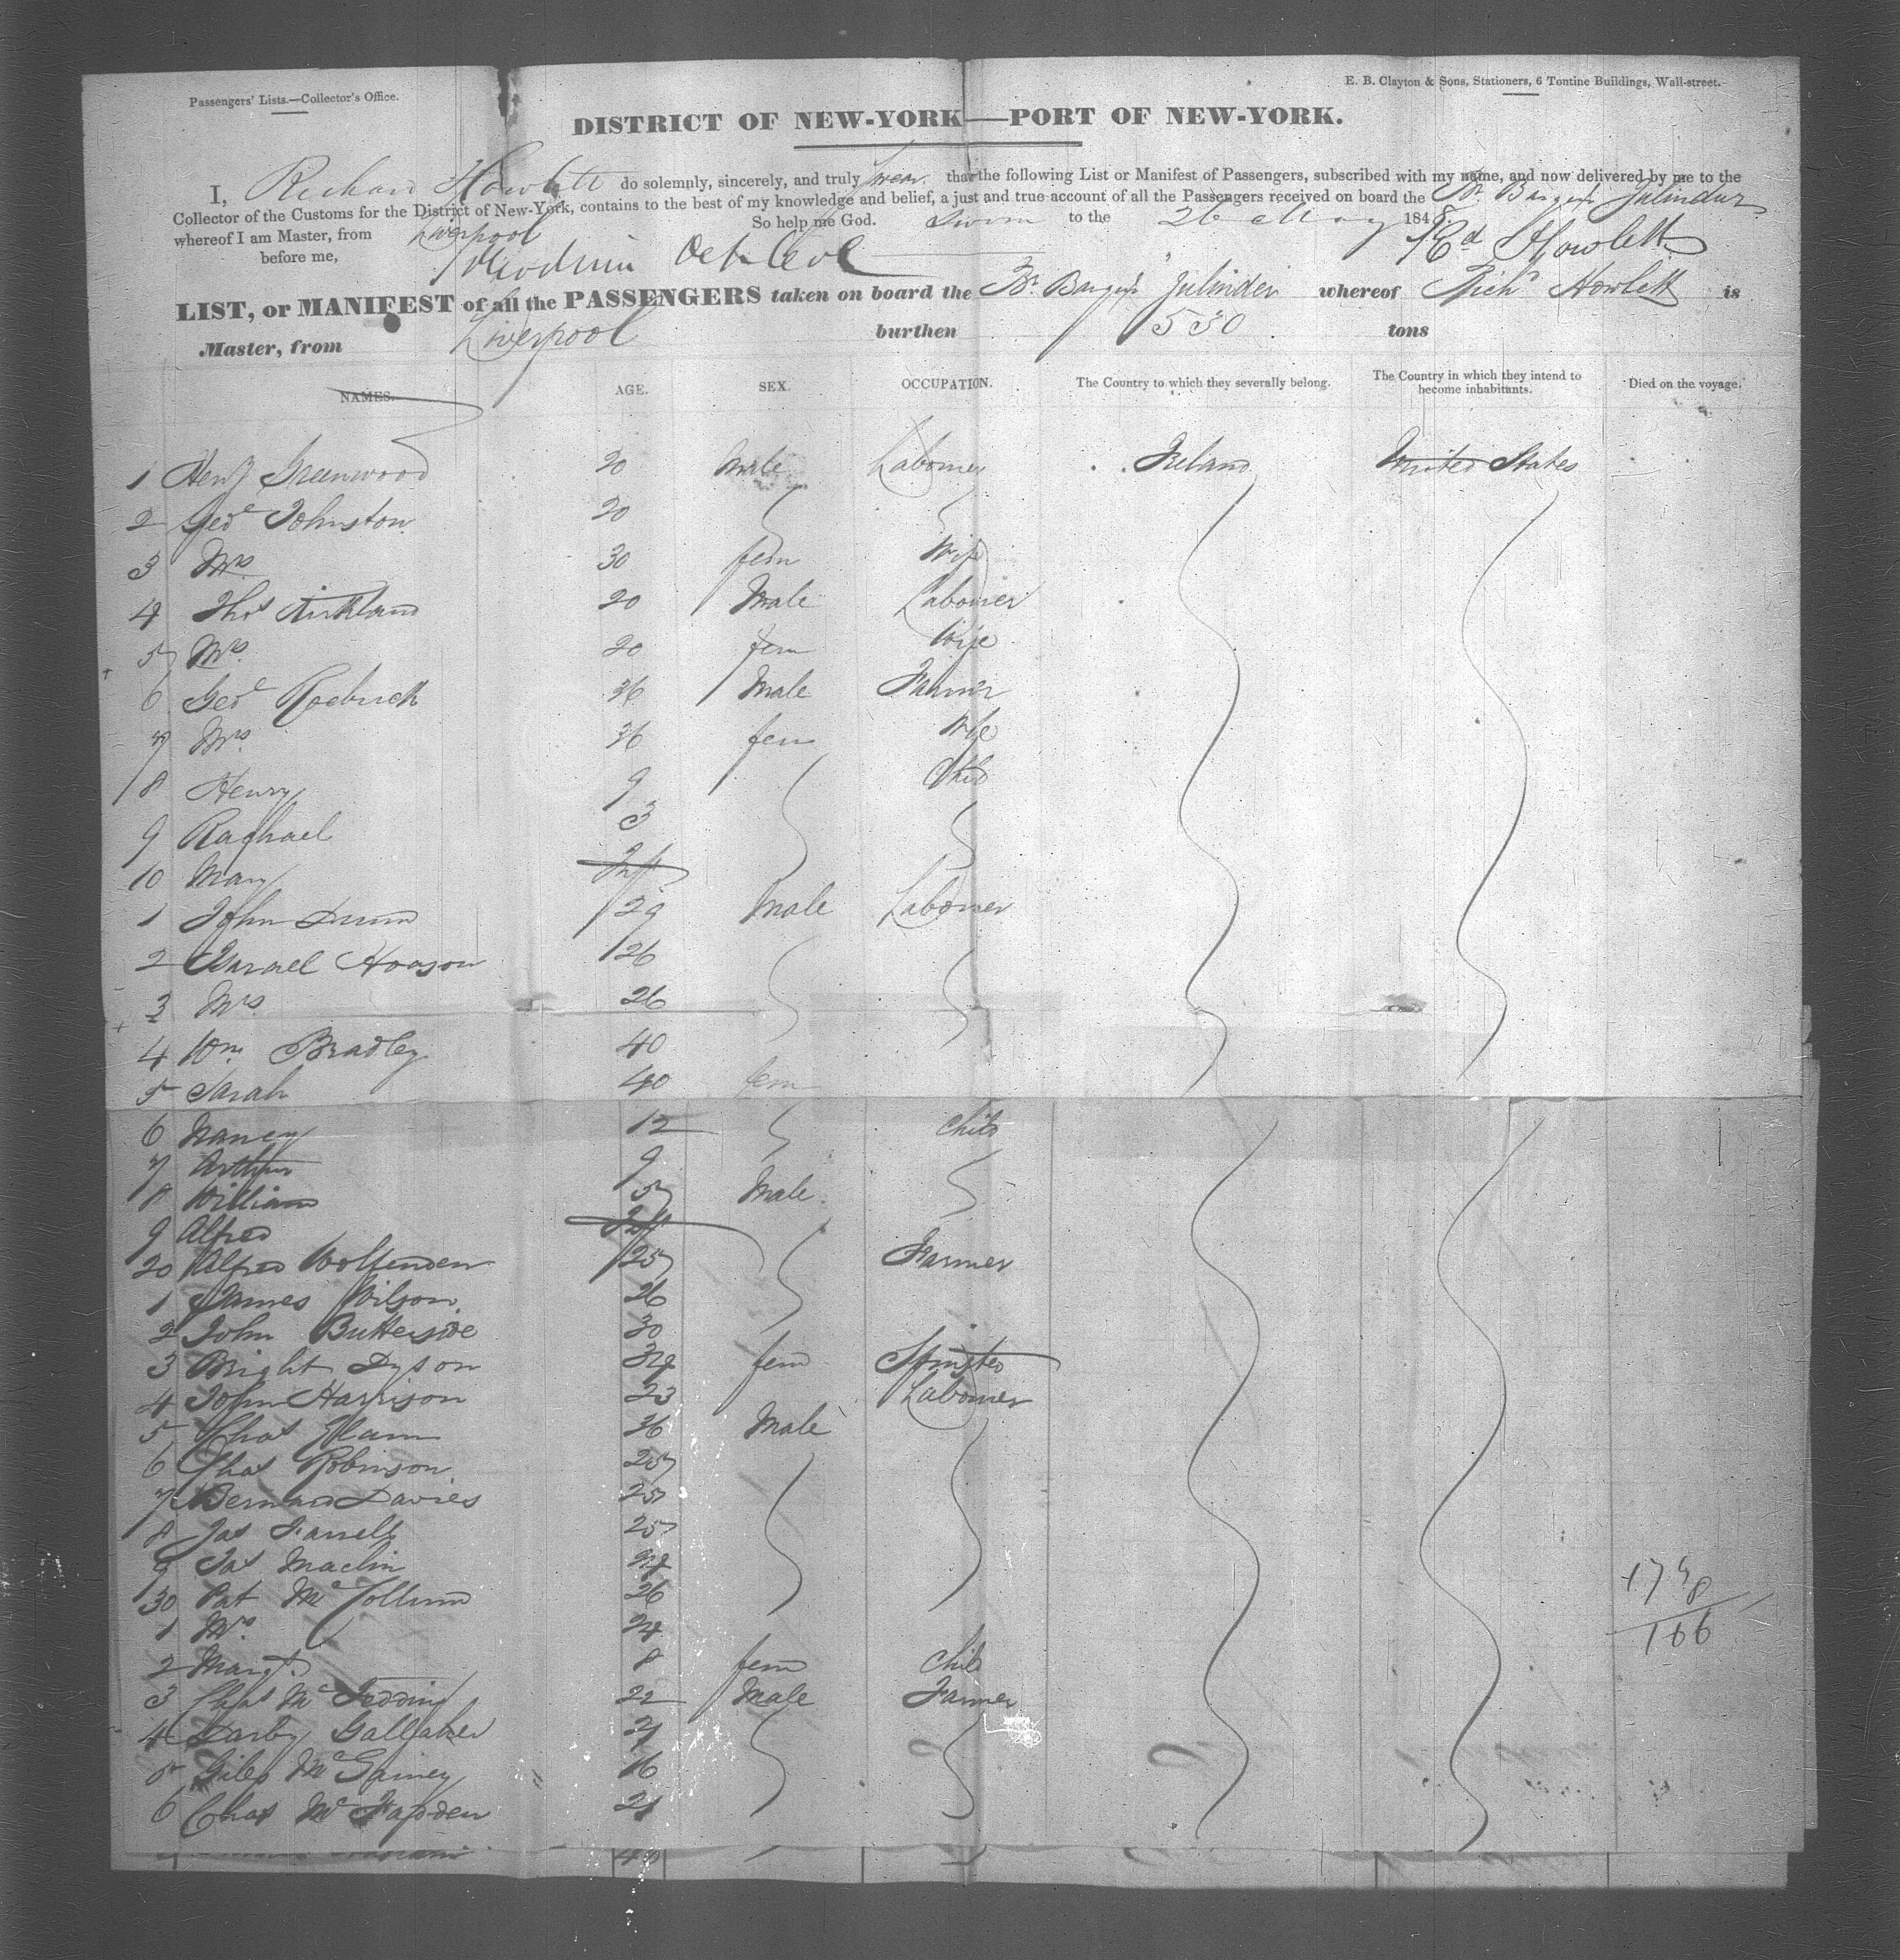 Passengers' Lists.—Collector's Office.
E. B. Clayton & Sons, Stationers, 6 Tontine Buildings, Wall-street.
DISTRICT OF NEW-YORK—PORT OF NEW-YORK.
I, Richard Howlett do solemnly, sincerely, and truly swear that the following List or Manifest of Passengers, subscribed with my name, and now delivered by me to the
Collector of the Customs for the District of New-York, contains to the best of my knowledge and belief, a just and true account of all the Passengers received on board the Br. Barque
whereof I am Master, from Liverpool So help me God. Sworn to the 26 May 1848.
before me, Rd Howlett
LIST, or MANIFEST of all the PASSENGERS taken on board the Br. Barque whereof Richd Howlett is
Master, from Liverpool burthen 530 tons
NAMES. AGE. SEX. OCCUPATION. The Country to which they severally belong. The Country in which they intend to become inhabitants. Died on the voyage.
1 Heny Greenwood 20 Male Labourer Ireland United States
2 Geoe Johnston 20
3 Mrs 30 fem Wife
4 Thos Kirkland 20 Male Labourer
5 Mrs 20 fem Wife
6 Geoe Roebuck 36 Male Farmer
7 Mrs 36 fem Wife
8 Henry 9 Child
9 Raphael 3
10 Mary
1 John Dunn 29 Male Labourer
2 Israel 26
3 Mrs 26
4 Wm Bradley 40
5 Sarah 40 fem
6 Nancy 12 Child
7 Arthur 9
8 William 5 Male
9 Alfred
20 Alfred Wolfenden 25 Farmer
1 James Wilson 26
2 John Butterside 30
3 Bright Dyson fem Spinster
4 John Harrison 23 Labourer
5 Chas 36 Male
6 Chas Robinson 25
7 Bernard Davies 25
8 Jas Farrell 25
9 Jas Maclin
30 Pat McCollum 26
1 Mrs 24
2 Margt 8 fem Child
3 Chas McFedding 22 Male Farmer
4 Darby Gallaher
5 Giles McGainey 16
6 Chas McFadden 21
166